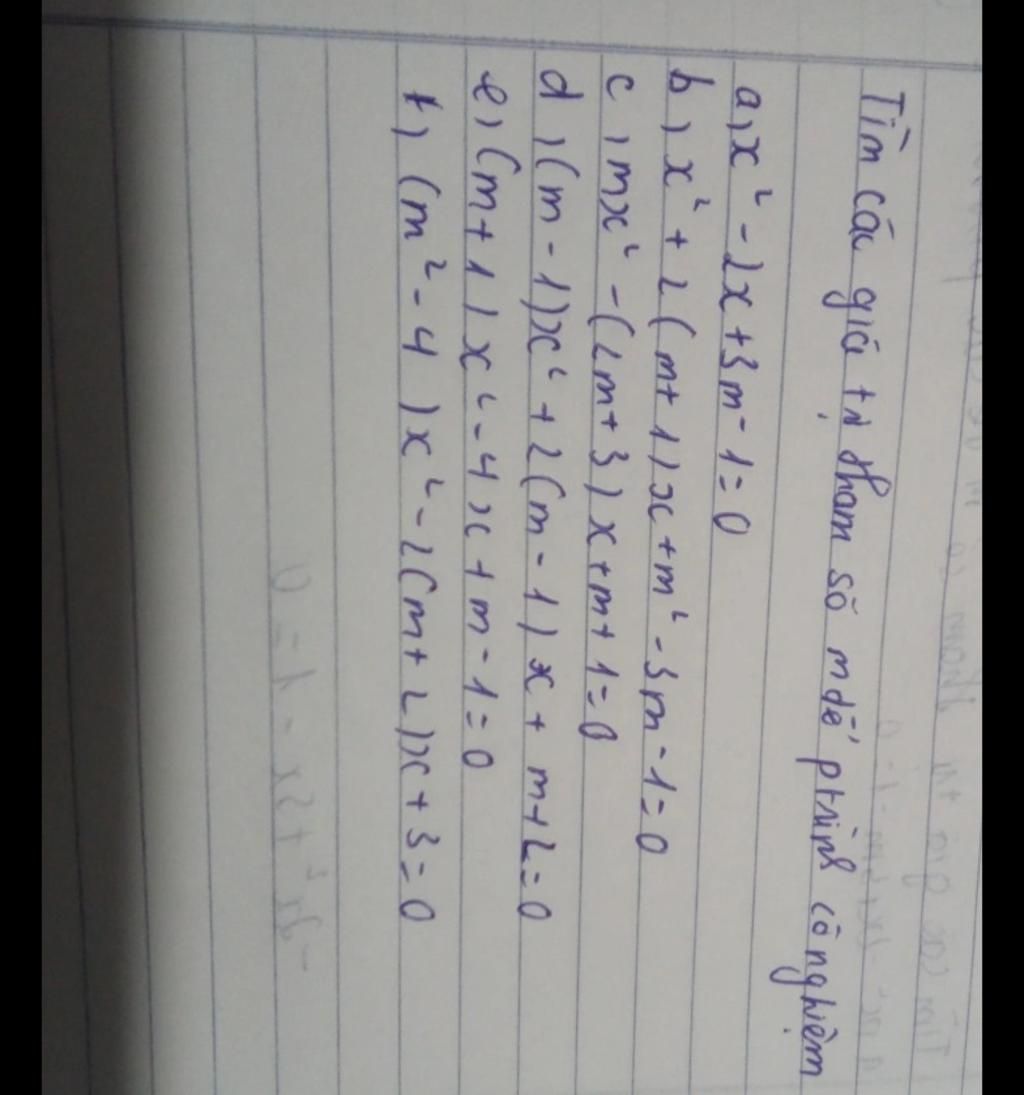 Tìm các giá trị tham số m để ptrình có nghiệm
a, x² - 2x + 3m - 1 = 0
b, x² + 2(m + 1)x + m² - 3m - 1 = 0
c, mx² - (2m + 3)x + m + 1 = 0
d, (m - 1)x² + 2(m - 1)x + m + 2 = 0
e, (m + 1)x² - 4x + m - 1 = 0
f, (m² - 4)x² - 2(m + 2)x + 3 = 0